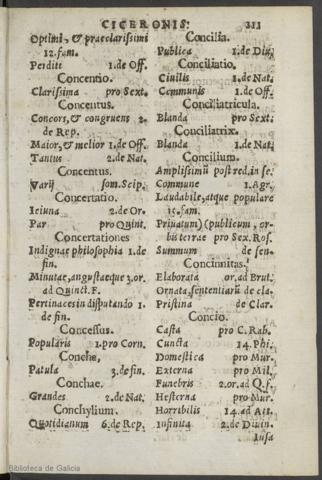 CICERONIS. 211
Optimi, & praeclarissimi
12. fam.
Perditi 1. de Off.
Concentio.
Clarissima pro Sext.
Concentus.
Concors, & congruens 2.
de Rep.
Maior, & melior 1. de Off.
Tantus 2. de Nat.
Concentus.
Varij som. Scip.
Concertatio.
Ieiuna 2. de Or.
Par pro Quint.
Concertationes
Indignae philosophia 1. de
fin.
Minutae, angustaeque 3. or.
ad Quinct. F.
Pertinaces in disputando 1.
de fin.
Concessus.
Popularis 1. pro Corn.
Conche,
Patula 3. de fin.
Conchae.
Grandes 2. de Nat.
Conchylium.
Quotidianum 6. de Rep.
Concilia.
Publica 1. de Diu.
Conciliatio.
Ciuilis 1. de Nat.
Communis 1. de Off.
Conciliatricula.
Blanda pro Sext.
Conciliatrix.
Blanda 1. de Nat.
Concilium.
Amplissimū post red. in se.
Commune 1. Agr.
Laudabile, atque populare
15. fam.
Priuatum) (publicum, or-
bis terrae pro Sex. Ros.
Summum de sen.
Concinnitas.
Elaborata or. ad Brut.
Ornata, sententiarū de cla.
Pristina de Clar.
Concio.
Casta pro C. Rab.
Cuncta 14. Phi.
Domestica pro Mur.
Externa pro Mil.
Funebris 2. or. ad Q. f.
Hesterna pro Mur.
Horribilis 14. ad Att.
Infinita 2. de Diuin.
Insa
Biblioteca de Galicia